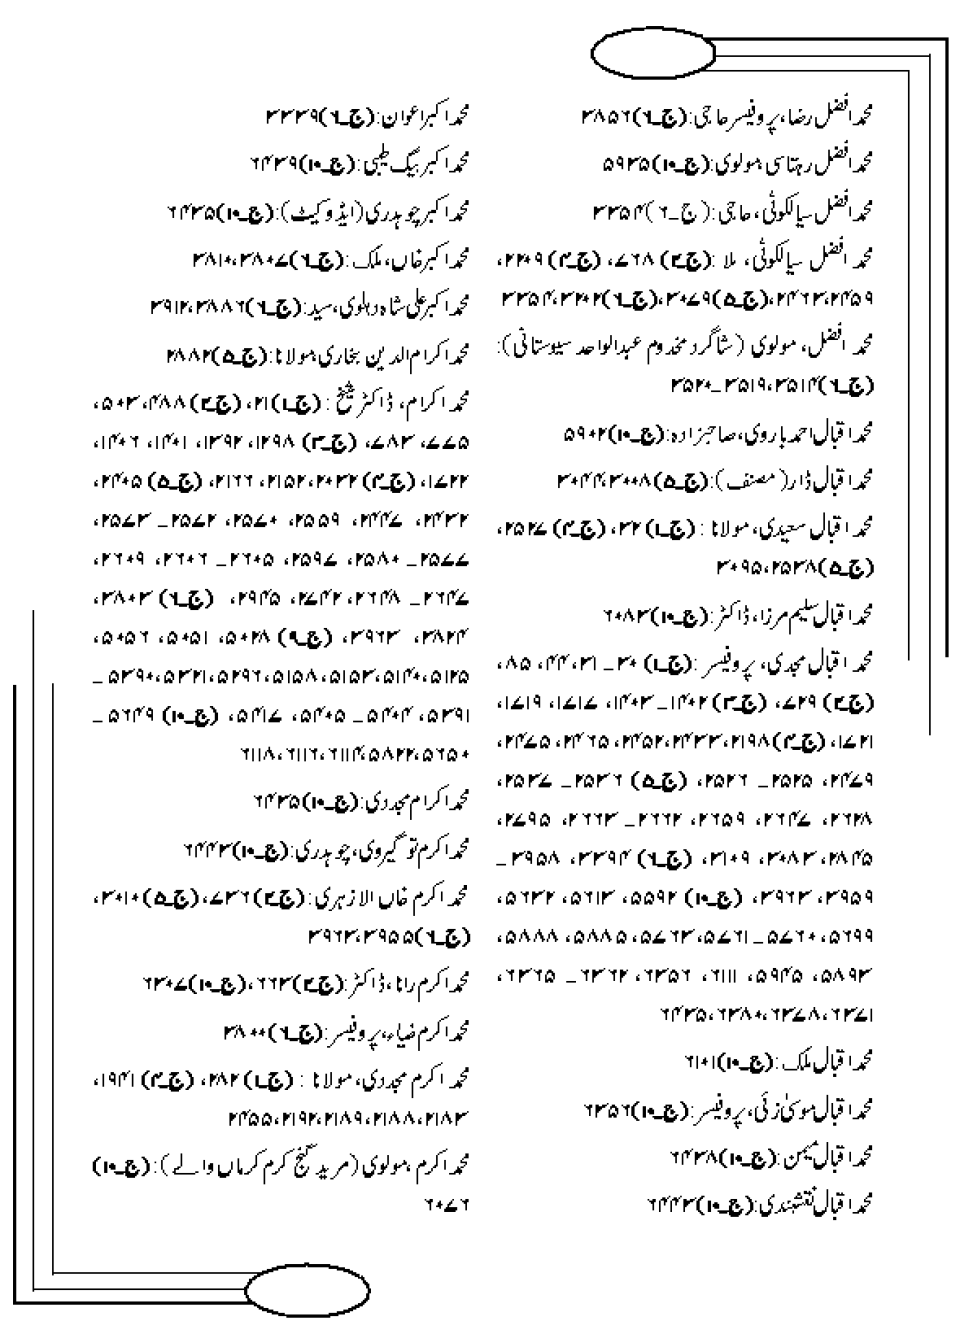 محمد افضل رضا، پروفیسر حاجی: (ج۔۶) ۳۸۵۶
محمد افضل رہتاسی، مولوی: (ج۔۱۰) ۵۹۳۵
محمد افضل سیالکوٹی، حاجی: (ج۔۶) ۳۳۵۴
محمد افضل سیالکوٹی، ملا: (ج۔۲) ۷۶۸، (ج۔۴) ۲۲۰۹،
۲۴۵۹، ۲۴۶۳، (ج۔۵) ۳۰۷۹، (ج۔۶) ۳۲۰۲، ۳۳۵۴
محمد افضل، مولوی (شاگرد مخدوم عبدالواحد سیوستانی):
(ج۔۶) ۳۵۱۴، ۳۵۱۹۔۳۵۲۰
محمد اقبال احمد باروی، صاحبزادہ: (ج۔۱۰) ۵۹۰۲
محمد اقبال ڈار (مصنف): (ج۔۵) ۳۰۰۸، ۳۰۴۴
محمد اقبال سعیدی، مولانا: (ج۔۱) ۳۲، (ج۔۴) ۲۵۲۷،
(ج۔۵) ۲۵۳۸، ۳۰۹۵
محمد اقبال سلیم مرزا، ڈاکٹر: (ج۔۱۰) ۶۰۸۳
محمد اقبال مجدی، پروفیسر: (ج۔۱) ۳۰۔ ۳۱، ۴۴، ۸۵،
(ج۔۲) ۷۲۹، (ج۔۳) ۱۴۰۲۔ ۱۴۰۳، ۱۷۱۷، ۱۷۱۹،
۱۷۲۱، (ج۔۴) ۲۱۹۸، ۲۴۳۳، ۲۴۵۲، ۲۴۶۵، ۲۴۷۵،
۲۴۷۹، ۲۵۲۵۔ ۲۵۲۶، (ج۔۵) ۲۵۳۶۔ ۲۵۳۷،
۲۶۲۸، ۲۶۴۷، ۲۶۵۹، ۲۶۶۲۔ ۲۶۶۳، ۲۷۹۵،
۲۸۴۵، ۳۰۸۳، ۳۱۰۹، (ج۔۶) ۳۳۹۴، ۳۹۵۸۔
۳۹۵۹، ۳۹۶۳، (ج۔۱۰) ۵۵۹۲، ۵۶۱۳، ۵۶۳۲،
۵۶۹۹، ۵۷۶۰۔۵۷۶۱، ۵۷۶۳، ۵۸۸۵، ۵۸۸۸،
۵۸۹۳، ۵۹۴۵، ۶۱۱۱، ۶۳۵۶، ۶۳۶۲۔ ۶۳۶۵،
۶۳۷۱، ۶۳۷۸، ۶۳۸۰، ۶۴۳۵
محمد اقبال ملک: (ج۔۱۰) ۶۱۰۱
محمد اقبال موسیٰ زئی، پروفیسر: (ج۔۱۰) ۶۳۵۶
محمد اقبال میمن: (ج۔۱۰) ۶۴۳۸
محمد اقبال نقشبندی: (ج۔۱۰) ۶۴۴۳
محمد اکبر اعوان: (ج۔۶) ۳۳۳۹
محمد اکبر بیگ طیبی: (ج۔۱۰) ۶۴۳۹
محمد اکبر چوہدری (ایڈوکیٹ): (ج۔۱۰) ۶۴۳۵
محمد اکبر خاں، ملک: (ج۔۶) ۳۸۰۷، ۳۸۱۰
محمد اکبر علی شاہ دہلوی، سید: (ج۔۶) ۳۸۸۶، ۳۹۱۲
محمد اکرام الدین بخاری، مولانا: (ج۔۵) ۲۸۸۲
محمد اکرام، ڈاکٹر شیخ: (ج۔۱) ۲۱، (ج۔۲) ۴۸۸، ۵۰۳،
۷۷۵، ۷۸۳، (ج۔۳) ۱۲۹۸، ۱۳۹۲، ۱۴۰۱، ۱۴۰۶،
۱۷۲۲، (ج۔۴) ۲۰۳۲، ۲۱۵۲، ۲۱۶۶، (ج۔۵) ۲۴۰۵،
۲۴۳۲، ۲۴۴۷، ۲۵۵۹، ۲۵۷۰، ۲۵۷۲۔ ۲۵۷۳،
۲۵۷۷۔ ۲۵۸۰، ۲۵۹۷، ۲۶۰۵۔ ۲۶۰۶، ۲۶۰۹،
۲۶۴۷۔ ۲۶۴۸، ۲۷۴۲، ۲۹۴۵، (ج۔۶) ۳۸۰۳،
۳۸۲۴، ۳۹۶۳، (ج۔۹) ۵۰۲۸، ۵۰۵۱، ۵۰۵۶،
۵۱۲۵، ۵۱۴۰، ۵۱۵۳، ۵۱۵۸، ۵۲۹۶، ۵۳۲۱، ۵۳۹۰۔
۵۳۹۱، ۵۴۰۴۔ ۵۴۰۵، ۵۴۱۷، (ج۔۱۰) ۵۶۴۹۔
۵۶۵۰، ۵۸۲۲، ۶۱۱۴، ۶۱۱۶، ۶۱۱۸
محمد اکرام مجددی: (ج۔۱۰) ۶۴۳۵
محمد اکرم تو گیروی، چوہدری: (ج۔۱۰) ۶۴۴۳
محمد اکرم خاں الازہری: (ج۔۲) ۷۳۶، (ج۔۵) ۳۰۱۰،
(ج۔۶) ۳۹۵۵، ۳۹۶۳
محمد اکرم رانا، ڈاکٹر: (ج۔۲) ۶۶۳، (ج۔۱۰) ۶۳۰۷
محمد اکرم ضیاء، پروفیسر: (ج۔۶) ۳۸۰۰
محمد اکرم مجددی، مولانا: (ج۔۱) ۲۸۲، (ج۔۴) ۱۹۴۱،
۲۱۸۳، ۲۱۸۸، ۲۱۸۹، ۲۱۹۲، ۲۴۵۵
محمد اکرم، مولوی (مرید گنج کرم کرماں والے): (ج۔۱۰)
۶۰۷۶